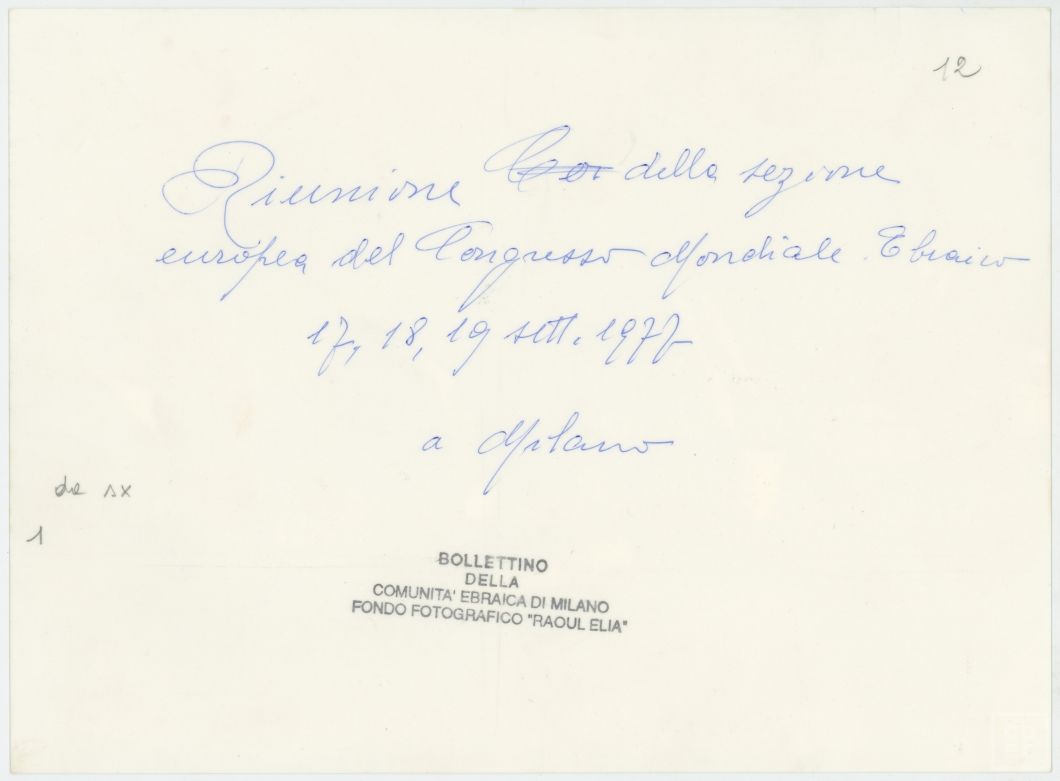 12
Riunione della sezione
europea del Congresso Mondiale Ebraico
17, 18, 19 sett. 1977
a Milano
da sx
1
BOLLETTINO
DELLA
COMUNITA' EBRAICA DI MILANO
FONDO FOTOGRAFICO "RAOUL ELIA"